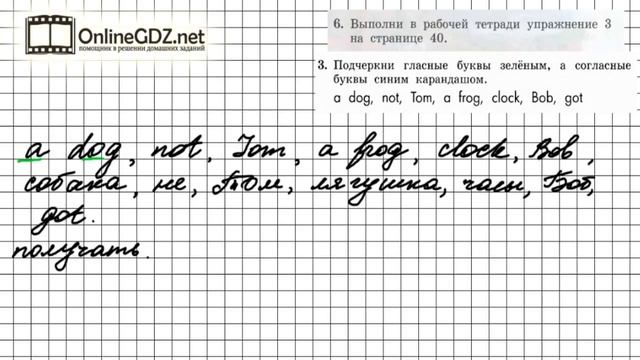 OnlineGDZ.net
помощник в решении домашних заданий
6. Выполни в рабочей тетради упражнение 3
на странице 40.
3. Подчеркни гласные буквы зелёным, а согласные
буквы синим карандашом.
a dog, not, Tom, a frog, clock, Bob, got
a dog, not, Tom, a frog, clock, Bob,
собака, не, Том, лягушка, часы, Боб,
got.
получать.